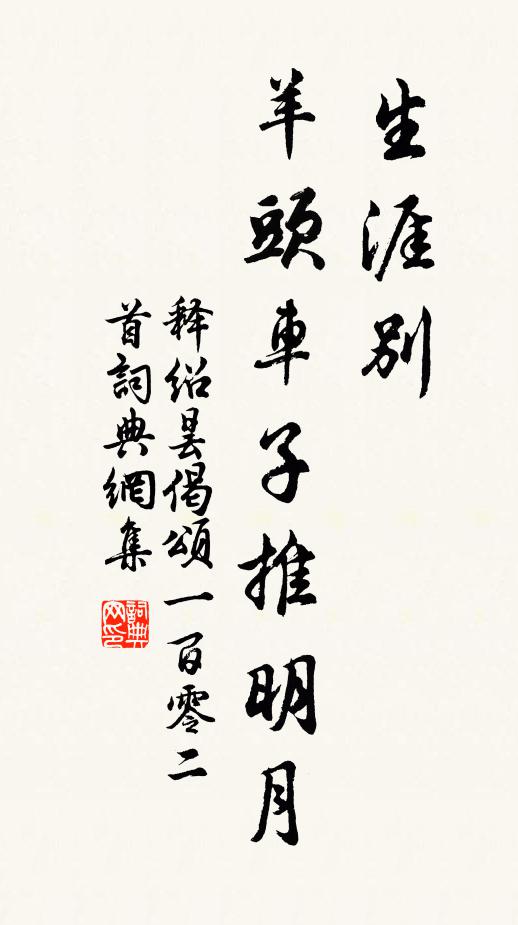 生涯別
羊頭車子推明月
释绍昙偈頌一百零二
首詞典網集
詞典网印